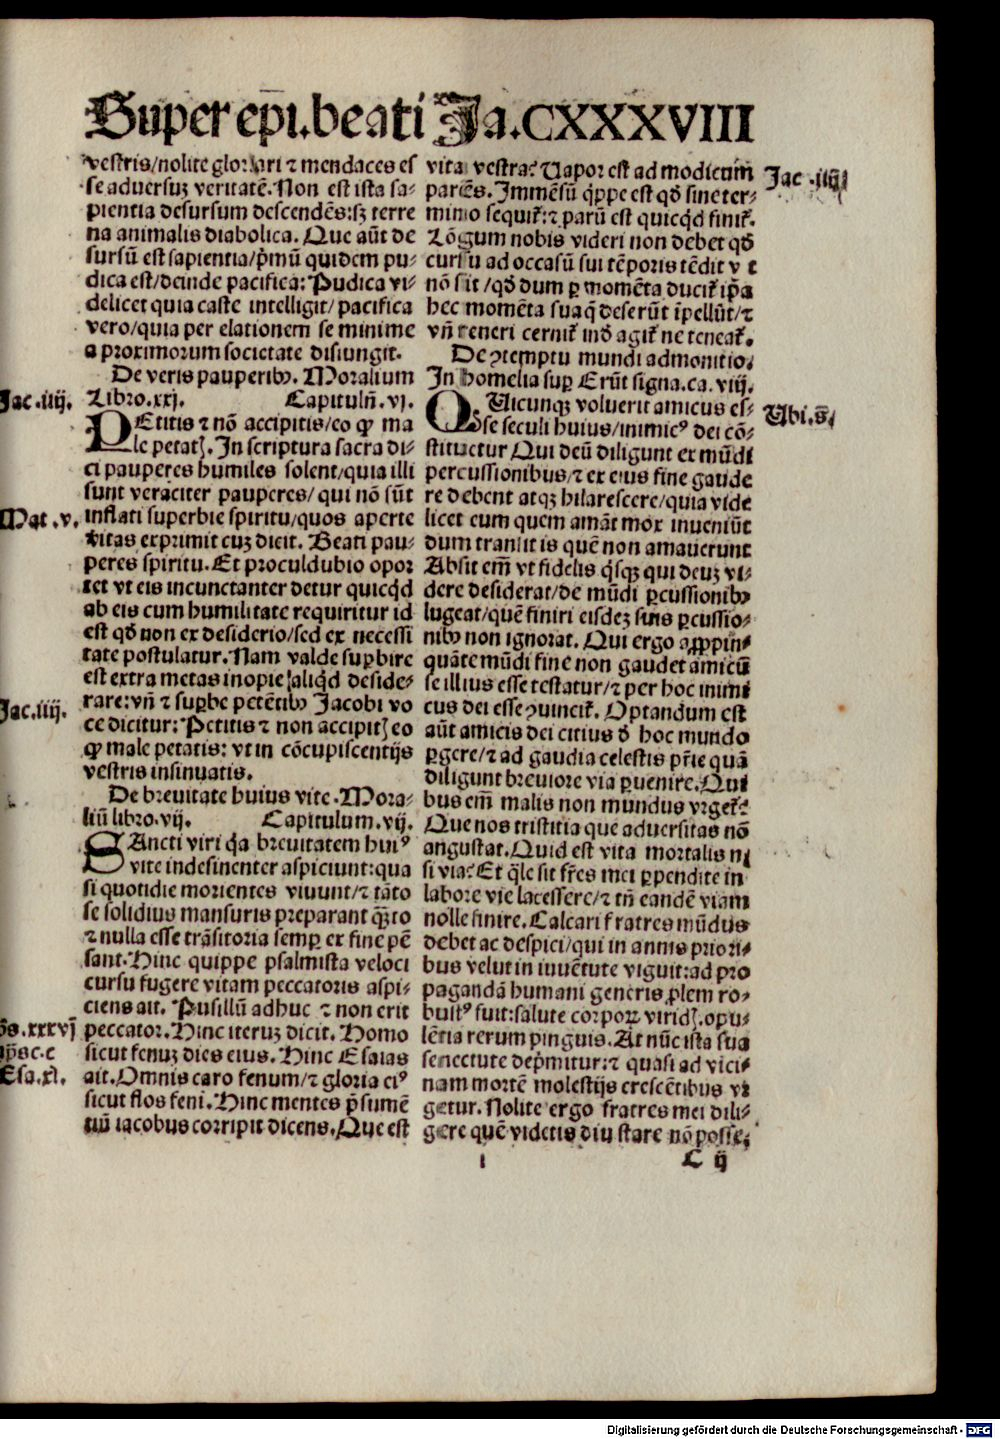 Super epi. beati Ja. CXXXVIII
vestris/nolite gloriari ⁊ mendaces es
se aduersuȝ veritatē. Non est ista sa-
pientia desursum descendēs: sȝ terre
na animalis diabolica. Que aūt de
sursū est sapientia/pͥmū quidem pu-
dica est/deinde pacifica: Pudica vi-
delicet quia caste intelligit/pacifica
vero/quia per elationem se minime
a proximorum societate disiungit.
De veris pauperibꝰ. Moralium
Jac .iiij.
Libro.xxj. Capitulū.vj.
PEtitis ⁊ nō accipitis/eo ꝙ ma
le petatꝭ. In scriptura sacra di-
ci pauperes humiles solent/quia illi
sunt veraciter pauperes/qui nō sūt
Mat .v.
inflati superbie spiritu/quos aperte
v̄itas exprimit cuȝ dicit. Beati pau-
peres spiritu. Et proculdubio opor
tet vt eis incunctanter detur quicq̇d
ab eis cum humilitate requiritur id
est qd̄ non ex desiderio/sed ex necessi
tate postulatur. Nam valde suꝑbire
est extra metas inopie aliq̇d deside-
Jac.iiij.
rare: vn̄ ⁊ suꝑbe petētibꝰ Jacobi vo
ce dicitur: Petitis ⁊ non accipitꝭ eo
ꝙ male petatis: vt in cōcupiscentijs
vestris insinuatis.
De breuitate huius vite. Mora-
liū libro.vij. Capitulum.vij.
SAncti viri q̇a breuitatem huiꝰ
vite indesinenter aspiciunt: qua
si quotidie morientes viuunt/⁊ tāto
se solidius mansuris preparant q̄ȝto
⁊ nulla esse trāsitoria semꝑ ex fine pē
sant. Hinc quippe psalmista veloci
cursu fugere vitam peccatoris aspi-
ciens ait. Pusillū adhuc ⁊ non erit
ps. xxxvj
peccator. Hinc iteruȝ dicit. Homo
sicut fenuȝ dies eius. Hinc Esaias
Esa.xl.
ait. Omnis caro fenum/⁊ gloria eiꝰ
sicut flos feni. Hinc mentes p̄sumē
tiū iacobus corripit dicens. Que est
vita vestra? Uapor est ad modicum
Jac .iiij
parēs. Immēsū q̇ppe est qd̄ sine ter-
mino sequit᷑: ⁊ parū est quicq̇d finit᷑.
Lōgum nobis videri non debet qd̄
cursu ad occasū sui tēporis tēdit v t
nō sit /qd̄ dum ꝑ momēta ducit᷑ ip̄a
hec momēta suaq̄ deserūt īpellūt/⁊
vn̄ teneri cernit᷑ ind̄ agit᷑ ne teneat᷑.
De ꝯtemptu mundi admonitio.
In homelia suꝑ Erūt signa. ca. viij.
QUicunqȝ voluerit amicus es-
Ubi.s̄
se seculi huius/inimicꝰ dei cō-
stituetur Qui deū diligunt ex mūdi
percussionibus/⁊ ex eius fine gaude
re debent atqȝ hilarescere/quia vide
licet eum quem amāt mox inueniūt
dum transit is quē non amauerunt
Absit em̄ vt fidelis q̇sqȝ qui deuȝ vi-
dere desiderat/de mūdi ꝑcussionibꝰ
lugeat/quē finiri eisdeȝ suis ꝑcussio-
nibꝰ non ignorat. Qui ergo aꝓpin-
quāte mūdi fine non gaudet amicū
se illius esse testatur/⁊ per hoc inimi
cus dei esse ꝯuincit᷑. Optandum est
aūt amicis dei citius d̄ hoc mundo
ꝑgere/⁊ ad gaudia celestis pr̄ie quā
diligunt breuiore via ꝑuenire. Qui
bus em̄ malis non mundus vrget᷑?
Que nos tristitia que aduersitas nō
angustat. Quid est vita mortalis ni
si via? Et q̄le sit fr̄es mei ꝑpendite in
labore vie lacessere/⁊ tn̄ eandē viam
nolle finire. Calcari fratres mūdus
debet ac despici/qui in annis priori-
bus velut in iuuētute viguit: ad pro
pagandā humani generis ꝓlem ro-
bustꝰ fuit: salute corpoꝝ viridꝭ. opu-
lētia rerum pinguis. At nūc ista sua
senectute dep̄mitur: ⁊ quasi ad vici-
nam mortē molestijs crescētibus vr
getur. Nolite ergo fratres mei dili-
gere quē videtis diu stare nō posse.
C ij
Digitalisierung gefördert durch die Deutsche Forschungsgemeinschaft - DFG